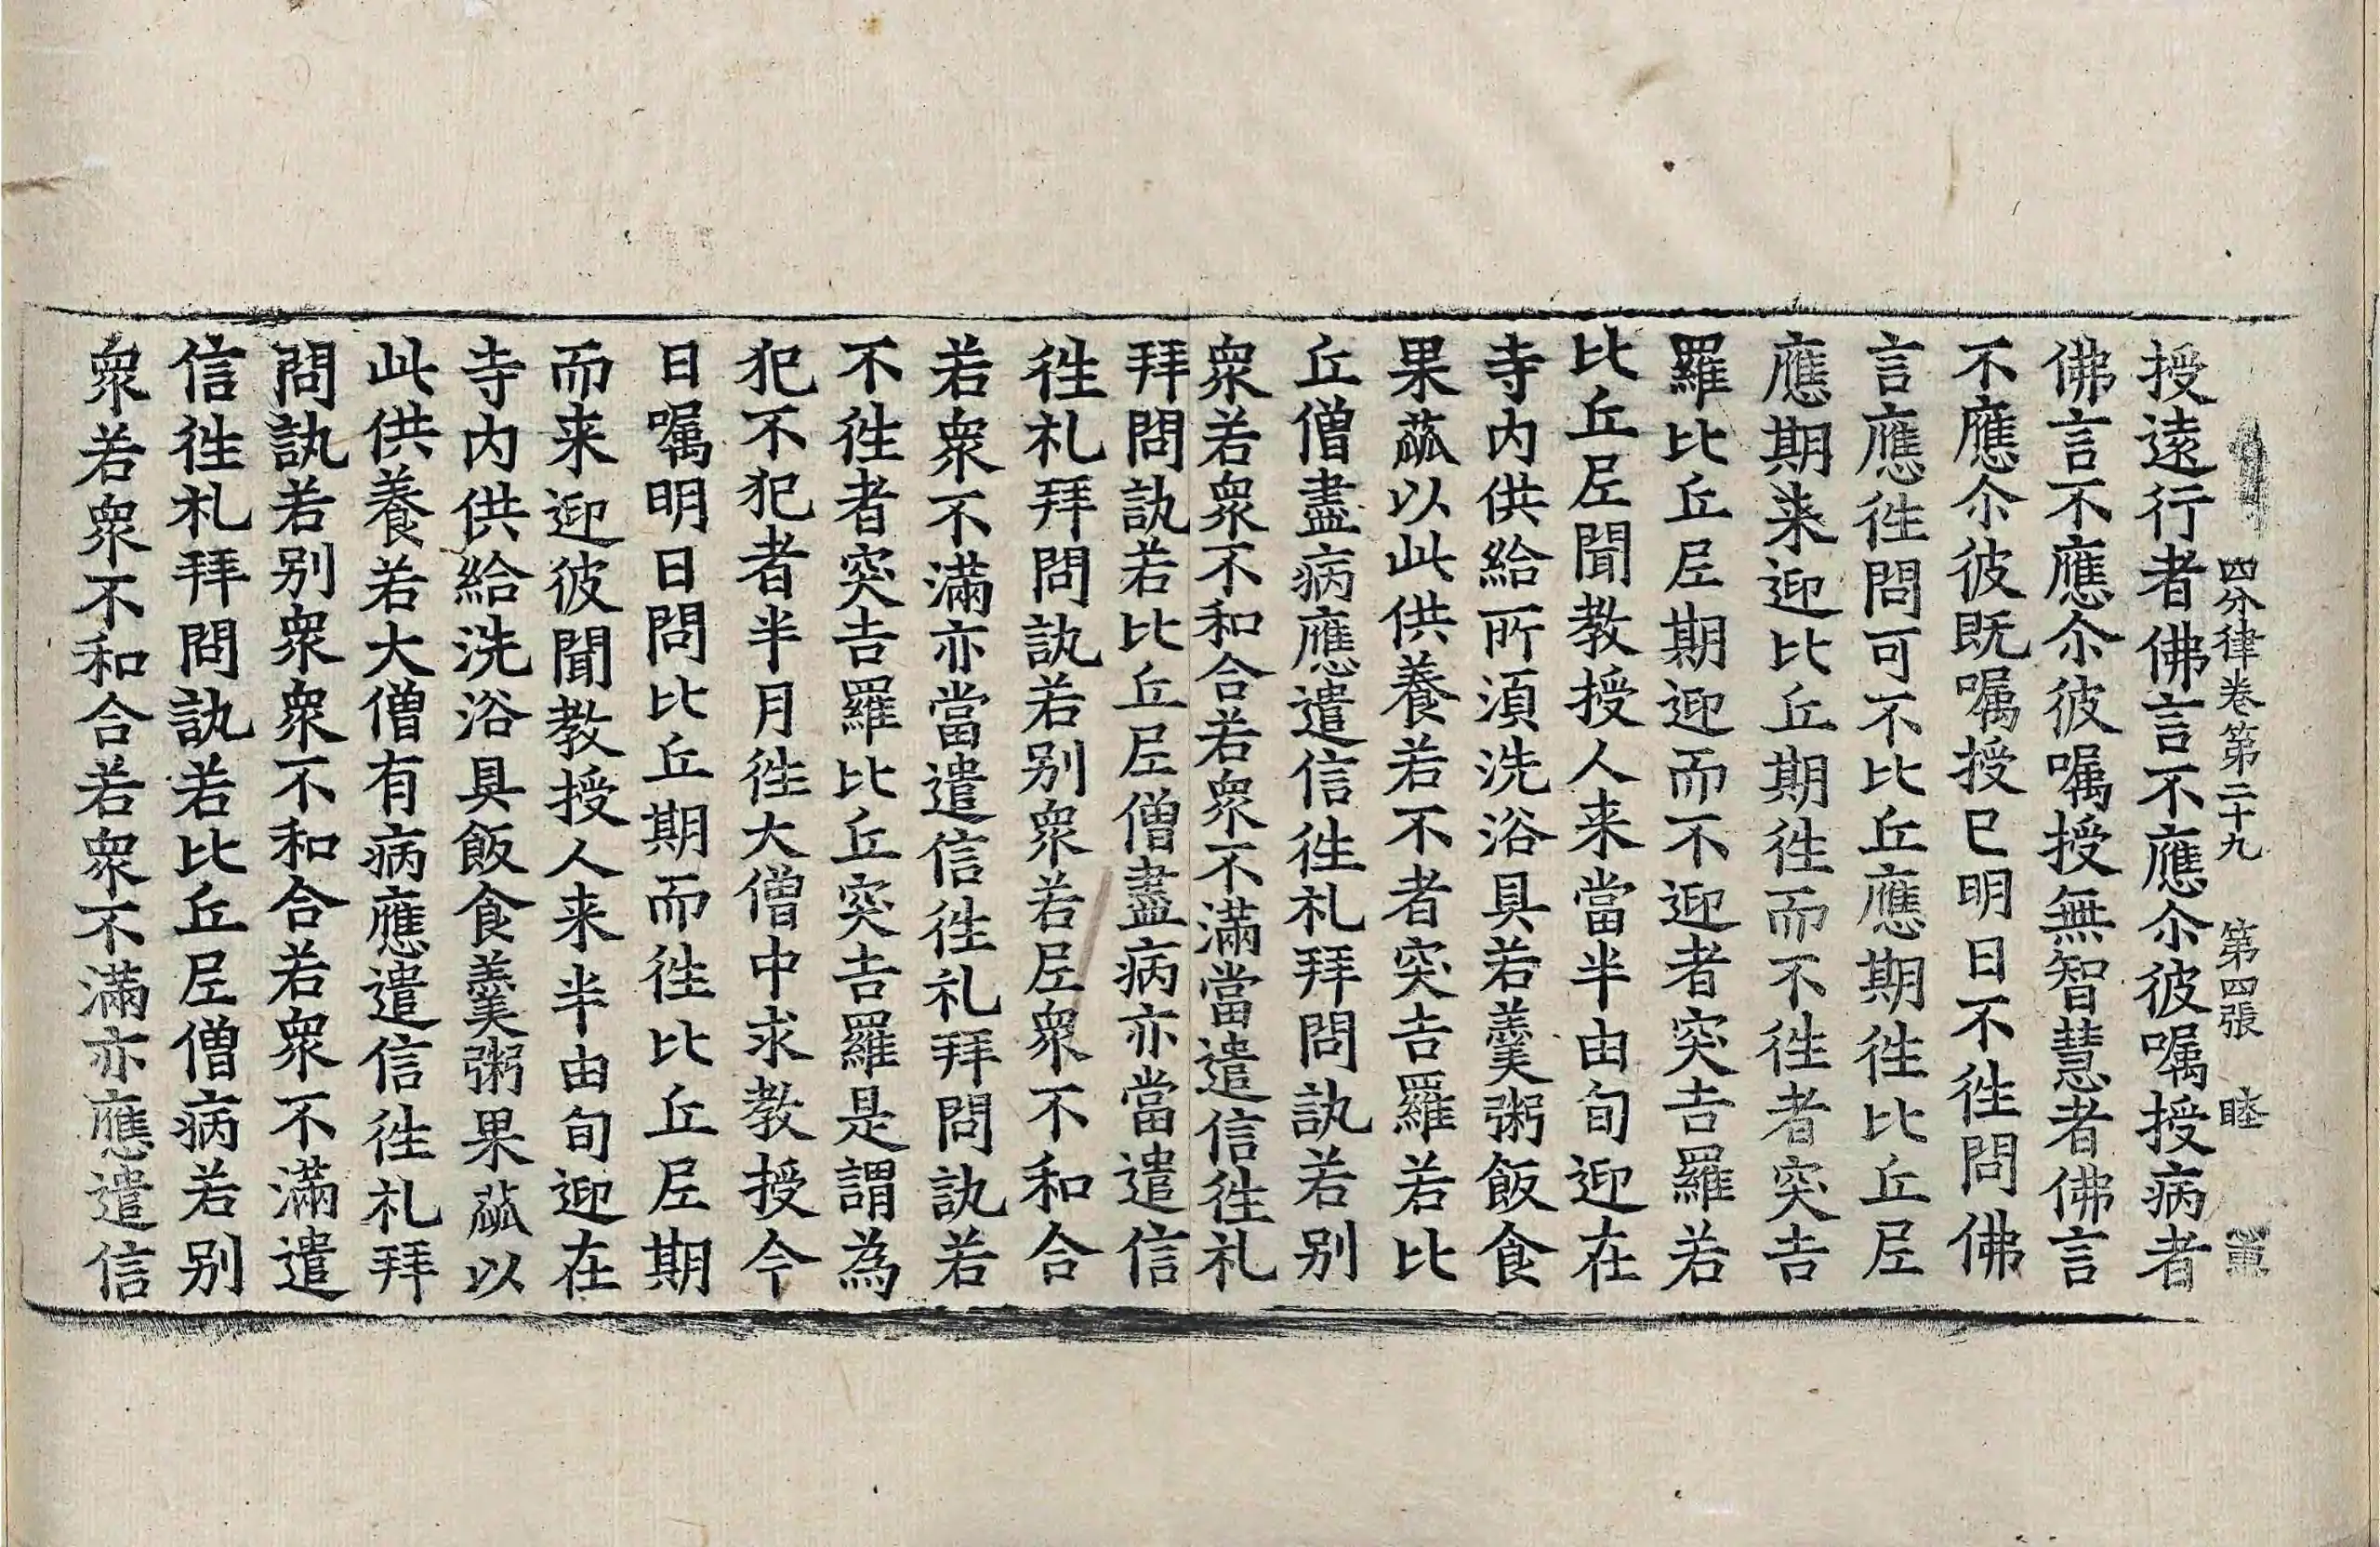 四分律卷第二十九 第四張 睦
授遠行者佛言不應尒彼囑授病者
佛言不應尒彼囑授無智慧者佛言
不應尒彼既囑授已明日不徃問佛
言應徃問可不比丘應期徃比丘𡰱
應期来迎比丘期徃而不徃者突吉
羅比丘𡰱期迎而不迎者突吉羅若
比丘𡰱聞教授人来當半由旬迎在
寺内供給所湏洗浴具若羹粥飯食
果蓏以此供養若不者突吉羅若比
丘僧盡病應遣信徃礼拜問訊若别
衆若衆不和合若衆不滿當遣信徃礼
拜問訊若比丘𡰱僧盡病亦當遣信
徃礼拜問訊若别衆若𡰱衆不和合
若衆不滿亦當遣信徃礼拜問訊若
不徃者突吉羅比丘突吉羅是謂為
犯不犯者半月徃大僧中求教授今
日囑明日問比丘期而徃比丘𡰱期
而来迎彼聞教授人来半由旬迎在
寺内供給洗浴具飯食羹粥果蓏以
此供養若大僧有病應遣信徃礼拜
問訊若别衆衆不和合若衆不滿遣
信徃礼拜問訊若比丘𡰱僧病若别
衆若衆不和合若衆不滿亦應遣信